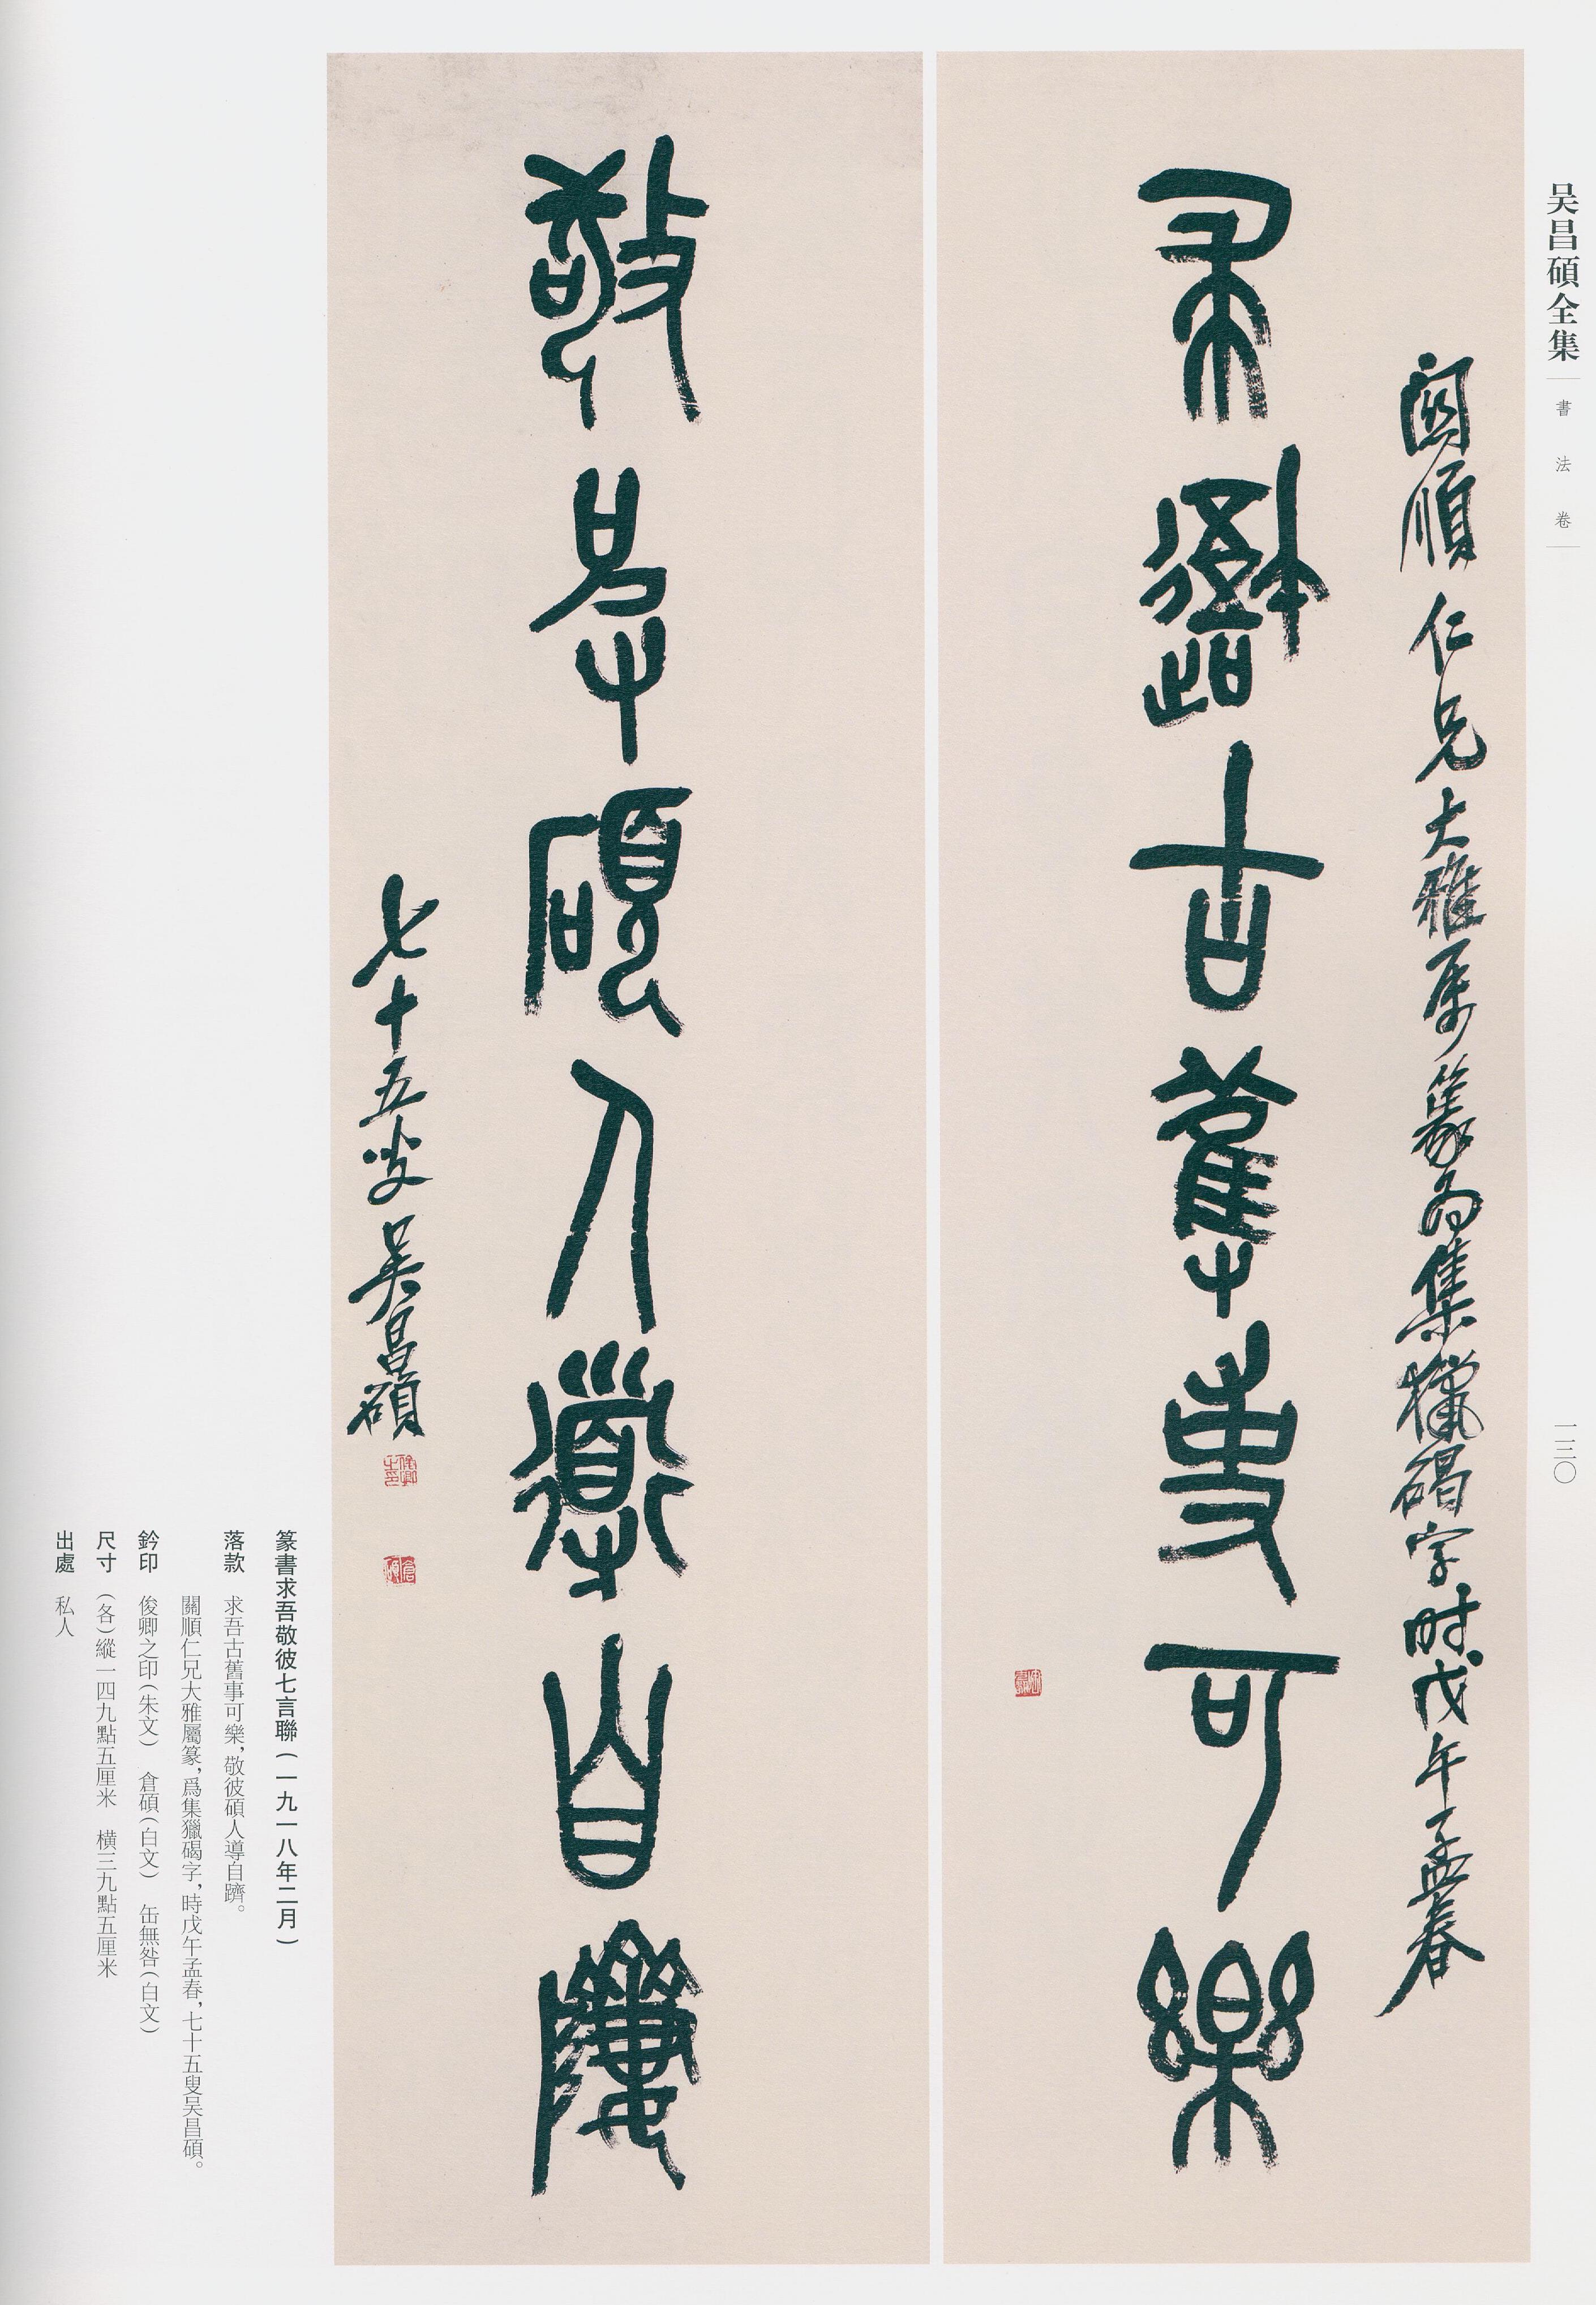 吴昌碩全集
書法卷
一三〇
闗順仁兄大雅属篆為集獵碣字时戊午孟春
求𨖍古舊事可樂
敬彼碩人導自隮
七十五叟吴昌碩
俊卿之印
倉碩
篆書求吾敬彼七言聯(一九一八年二月)
落款 求吾古舊事可樂,敬彼碩人導自躋。
關順仁兄大雅屬篆,爲集獵碣字,時戊午孟春,七十五叟吴昌碩。
鈐印 俊卿之印(朱文) 倉碩(白文) 缶無咎(白文)
尺寸 (各)縱一四九點五厘米 橫三九點五厘米
出處 私人